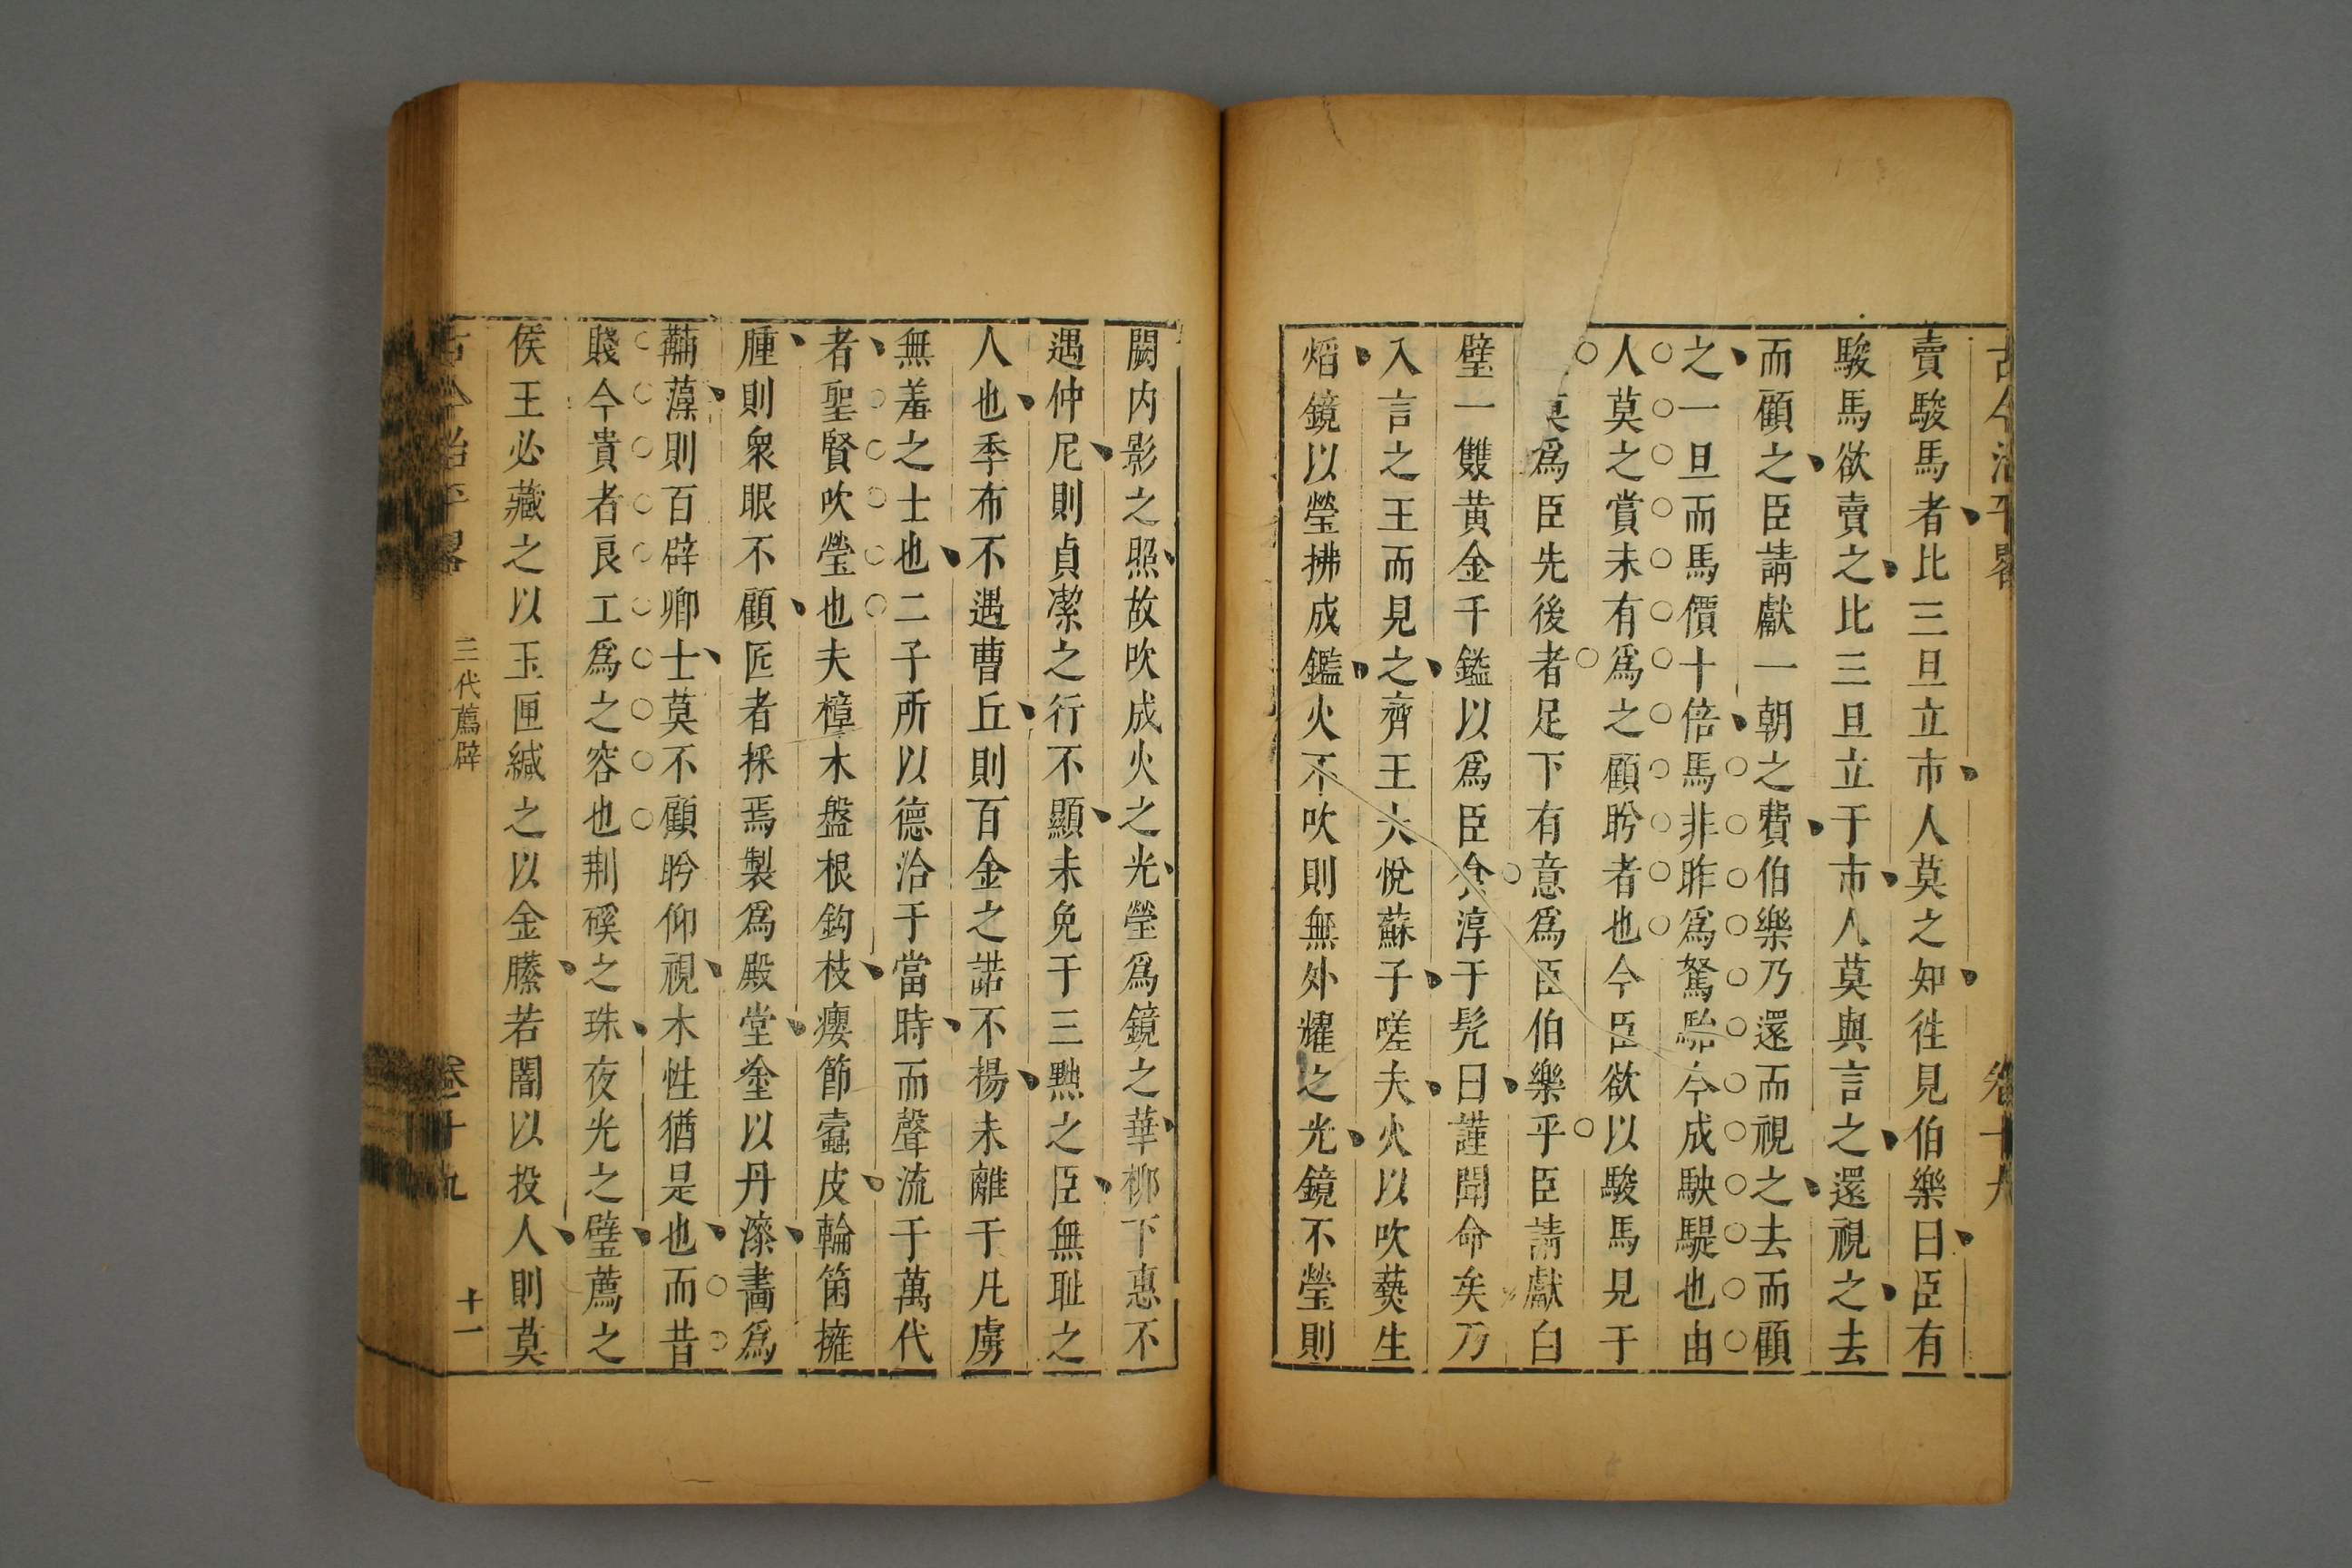 古今治平畧 卷十九
賣駿馬者比三旦立市人莫之知徃見伯樂曰臣有
駿馬欲賣之比三旦立于市人莫與言之還視之去
而顧之臣請獻一朝之費伯樂乃還而視之去而顧
之一旦而馬價十倍馬非昨爲駑駘今成駃騠也由
人莫之賞未有爲之顧盻者也今臣欲以駿馬見于
莫爲臣先後者足下有意爲臣伯樂乎臣請獻白
璧一雙黃金千鎰以爲臣食淳于髡曰謹聞命矣乃
入言之王而見之齊王大悅蘇子嗟夫火以吹爇生
熖鏡以瑩拂成鑑火不吹則無外耀之光鏡不瑩則
闕内影之照故吹成火之光瑩爲鏡之華柳下惠不
遇仲尼則貞潔之行不顯未免于三黜之臣無耻之
人也季布不遇曹丘則百金之諾不揚未離于凡虜
無羞之士也二子所以德洽于當時而聲流于萬代
者聖賢吹瑩也夫樟木盤根鈎枝癭節蠹皮輪箘擁
腫則衆眼不顧匠者採焉製爲殿堂塗以丹漆畵爲
黼藻則百辟卿士莫不顧盻仰視木性猶是也而昔
賤今貴者良工爲之容也荆磎之珠夜光之璧薦之
侯王必藏之以玉匣緘之以金縢若闇以投人則莫
古今治平畧 三代薦辟 卷十九 十一